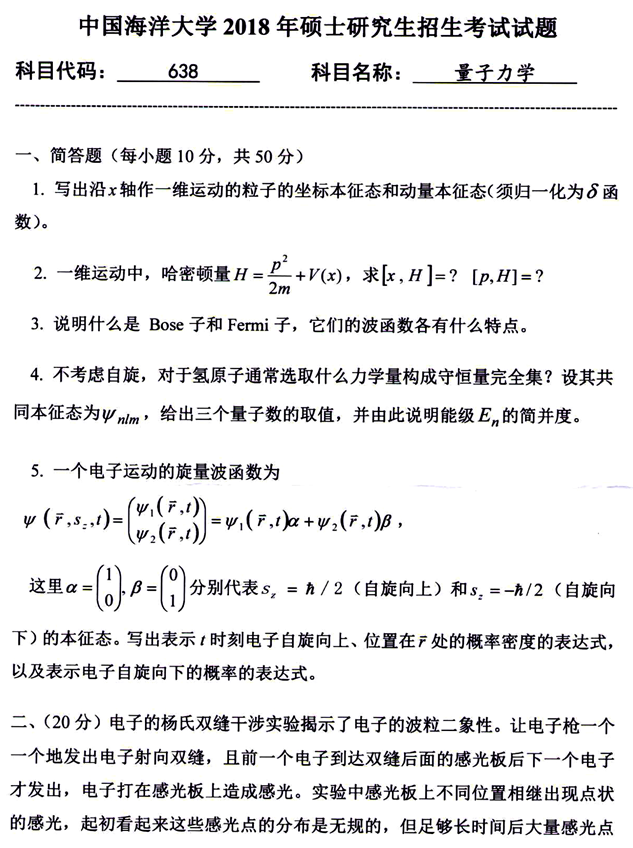 中国海洋大学 2018 年硕士研究生招生考试试题
科目代码： 638 科目名称： 量子力学
一、简答题（每小题 10 分，共 50 分）
1. 写出沿 x 轴作一维运动的粒子的坐标本征态和动量本征态（须归一化为 δ 函
数）。
2. 一维运动中，哈密顿量 H = p²/2m + V(x)，求[x , H ]=？ [p,H]=？
3. 说明什么是 Bose 子和 Fermi 子，它们的波函数各有什么特点。
4. 不考虑自旋，对于氢原子通常选取什么力学量构成守恒量完全集？设其共
同本征态为ψnlm，给出三个量子数的取值，并由此说明能级 En 的简并度。
5. 一个电子运动的旋量波函数为
ψ (r⃗ ,sz,t)= (ψ1(r⃗ ,t) ψ2(r⃗ ,t)) = ψ1(r⃗ ,t)α + ψ2(r⃗ ,t)β ，
这里α = (1 0), β = (0 1) 分别代表 sz = ħ / 2（自旋向上）和 sz = −ħ/2（自旋向
下）的本征态。写出表示 t 时刻电子自旋向上、位置在 r⃗ 处的概率密度的表达式，
以及表示电子自旋向下的概率的表达式。
二、（20 分）电子的杨氏双缝干涉实验揭示了电子的波粒二象性。让电子枪一个
一个地发出电子射向双缝，且前一个电子到达双缝后面的感光板后下一个电子
才发出，电子打在感光板上造成感光。实验中感光板上不同位置相继出现点状
的感光，起初看起来这些感光点的分布是无规的，但足够长时间后大量感光点